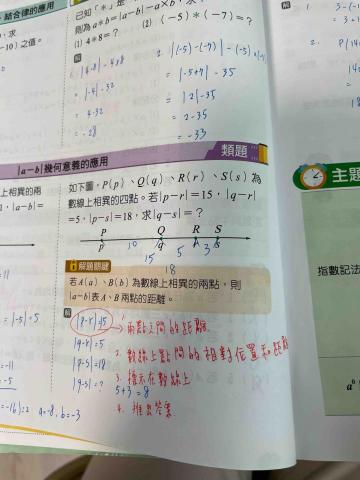 結合律的應用
-10）之值。
則為a*b=|a-b|-a×b
(1) 4*8=？ (2) (-5)*(-7)=？
解
1. |4-8|-4×8
=|-4|-32
=4-32
=-28
2. |(-5)-(-7)|-
=|-5+7|-35
=|2|-35
=2-35
=-33
|a-b|幾何意義的應用
類題
如下圖，P(p)、Q(q)、R(r)、S(s)為
數線上相異的四點。若|p-r|=15，|q-r|
=5，|p-s|=18，求|q-s|=？
P Q R S
10 5 3
15
18
解題關鍵
若A(a)、B(b)為數線上相異的兩點，則
|a-b|表A、B兩點的距離。
解
|p-r|=15
1. 兩點之間的距離
|q-r|=5
2. 數線上點間的相對位置和距離
|p-s|=18
3. 標示在數線上
|q-s|=?
5+3=8
4. 推出答案
主題
指數記法